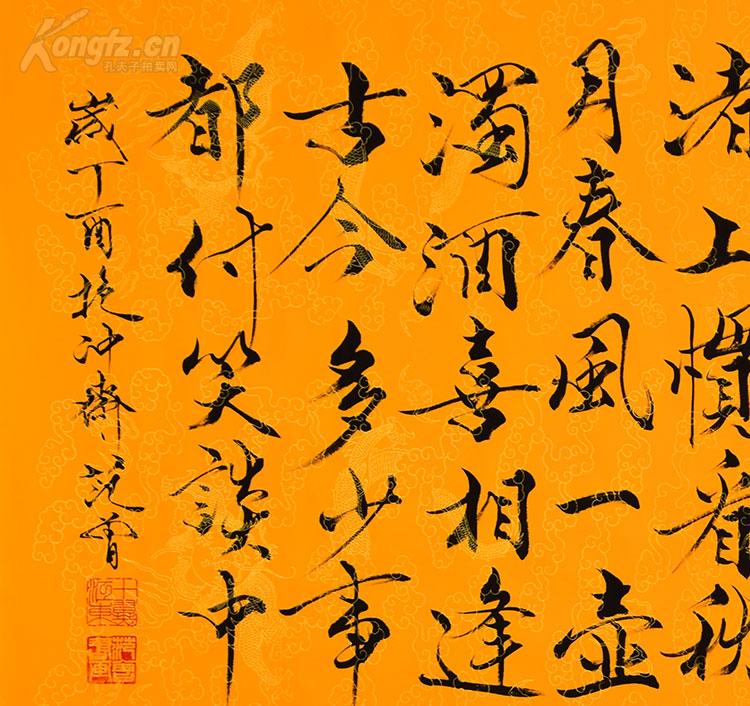 渚上慣看秋
月春風一壺
濁酒喜相逢
古今多少事
都付笑談中
歲丁酉抱沖齋范曾
Kongfz.cn
孔夫子拍卖网